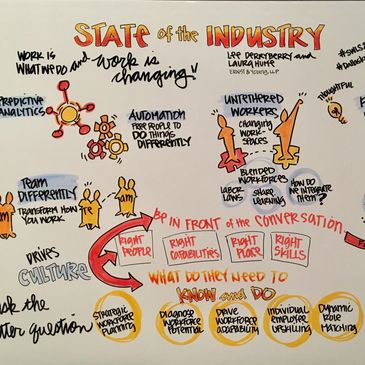 STATE of the INDUSTRY
WORK IS
WHAT WE DO and
"work is
changing"
LEE DERRYBERRY and
LAURA HUME
ERNST & YOUNG, LLP
PREDICTIVE
ANALYTICS
AUTOMATION
FREE PEOPLE TO
DO THINGS
DIFFERENTLY
UNTETHERED
WORKERS
CHANGING
WORK-
SPACES
THOUGHTFUL
BLENDED
WORKFORCES
LABOR
LAWS
SHARE
LEARNING
HOW DO WE
INTEGRATE
THEM?
TEAM
DIFFERENTLY
TRANSFORM HOW
YOU WORK
DRIVES
CULTURE
BE IN FRONT of the CONVERSATION
RIGHT
PEOPLE
RIGHT
CAPABILITIES
RIGHT
PLACE
RIGHT
SKILLS
WHAT DO THEY NEED to
KNOW and DO
ask the
question
STRATEGIC
WORKFORCE
PLANNING
DIAGNOSE
WORKFORCE
POTENTIAL
DRIVE
WORKFORCE
ADAPTABILITY
INDIVIDUAL
EMPLOYEE
UPSKILLING
DYNAMIC
ROLE
MATCHING